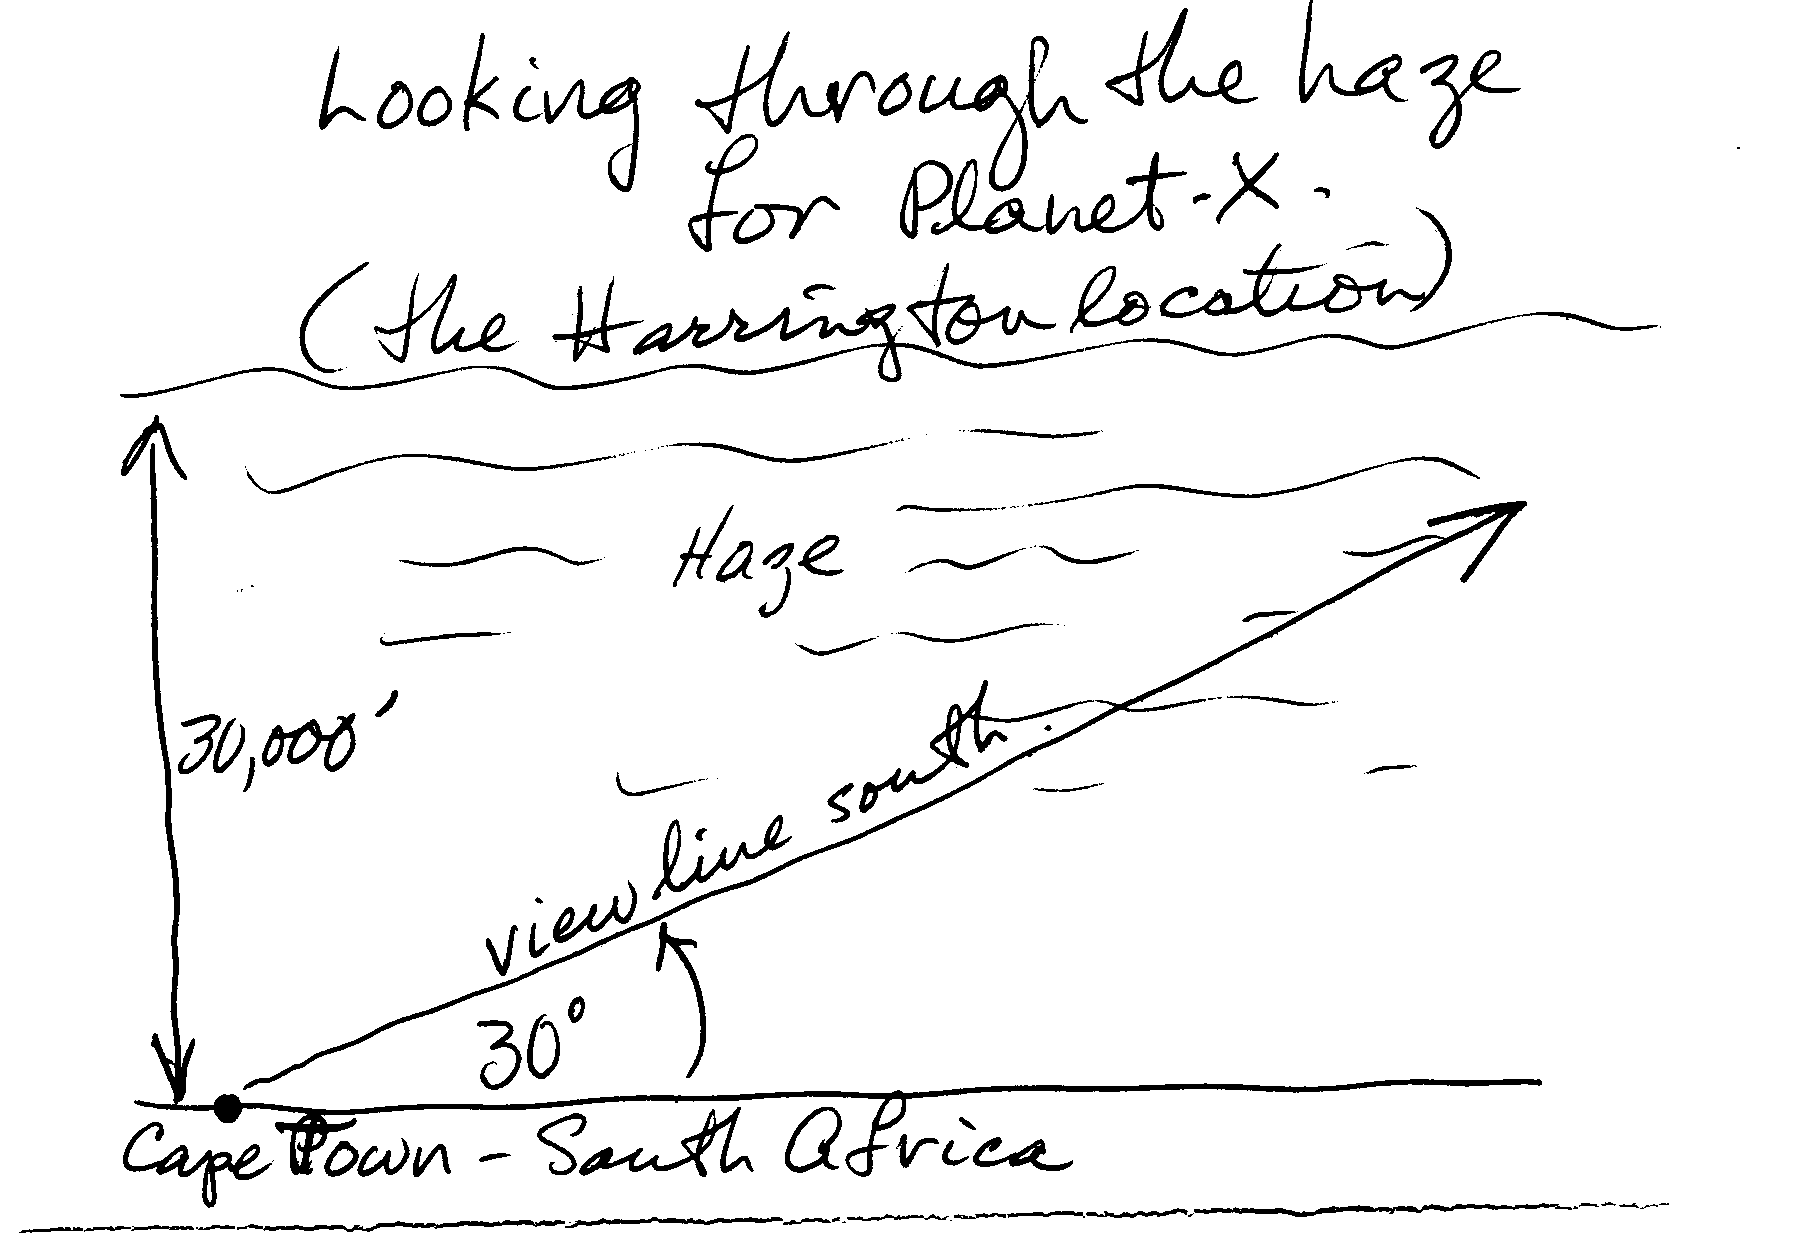 Looking through the haze
for Planet-X.
(the Harrington location)
Haze
30,000'
view line south.
30°
Cape Town - South Africa